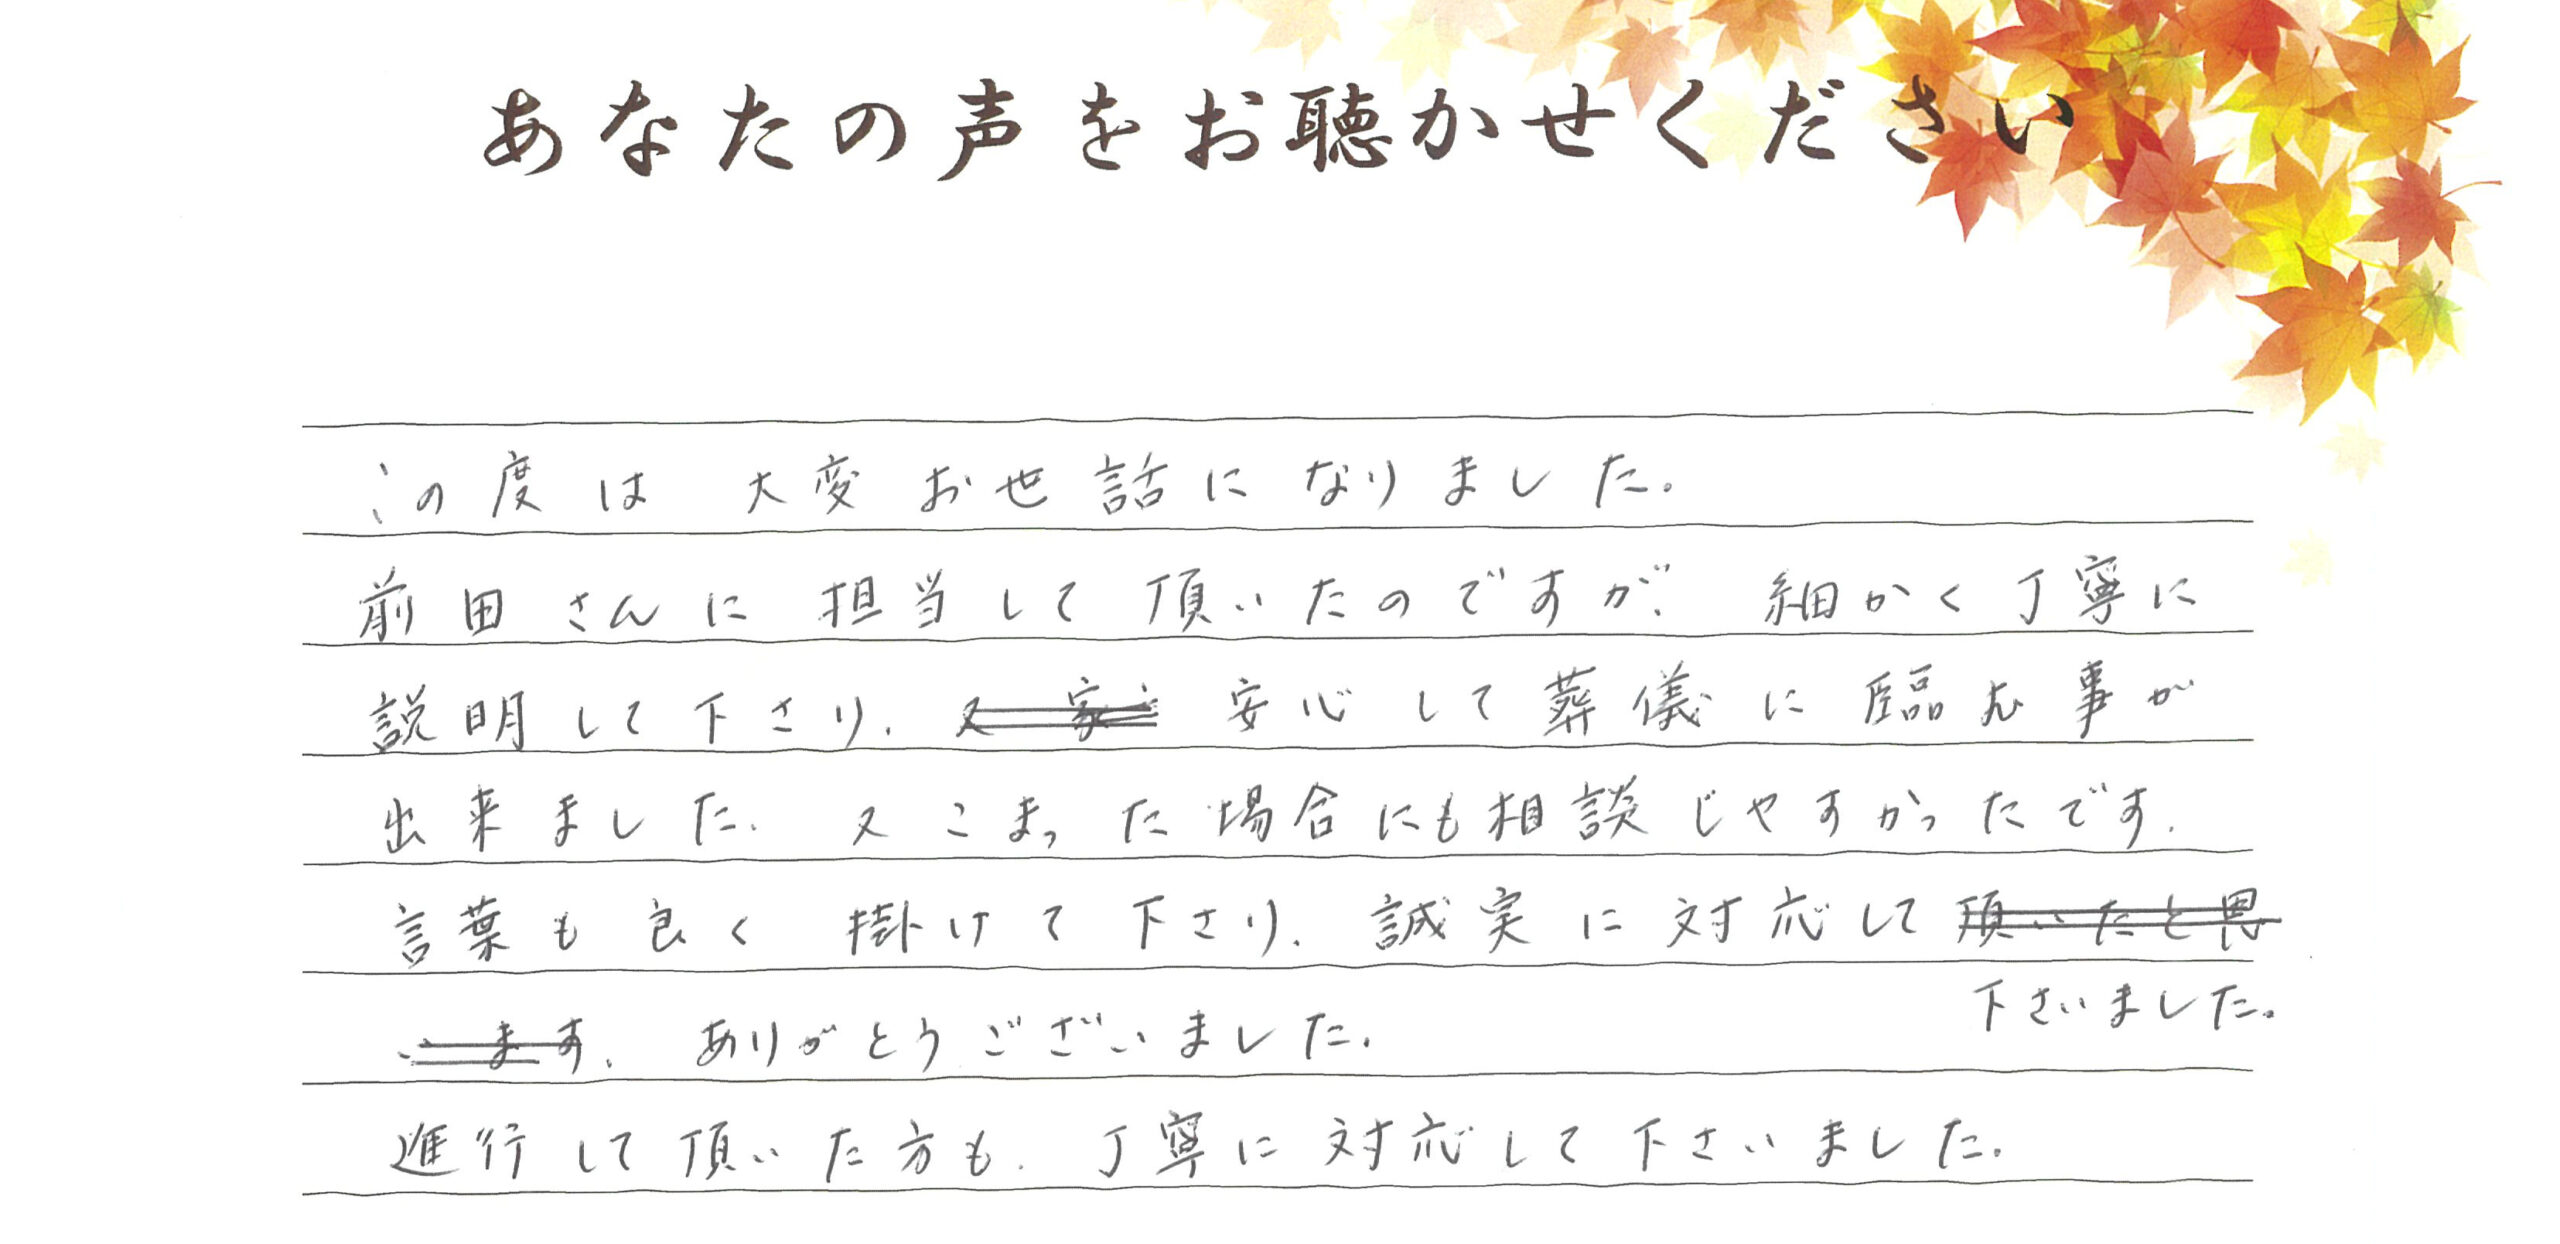 あなたの声をお聴かせください
この度は 大変お世話になりました。
前田さんに担当して頂いたのですが、細かく丁寧に
説明して下さり、又 家 安心して葬儀に臨む事が
出来ました。又こまった場合にも相談じやすかったです。
言葉も良く掛けて下さり、誠実に対応して頂いたと思
下さいました。
います。ありがとうございました。
進行して頂いた方も、丁寧に対応して下さいました。